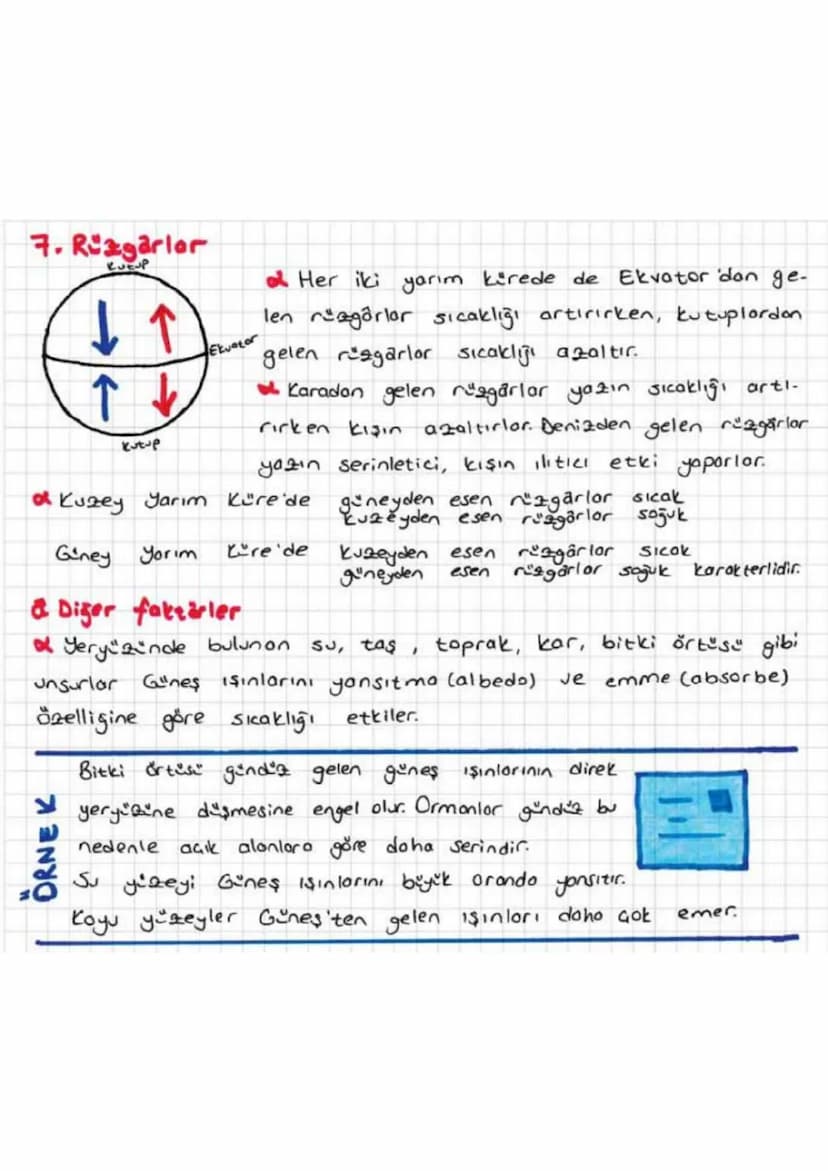 7. Rüzgârlar
Kutup
Ekvator
Kutup
Her iki yarım kürede de Ekvator'dan ge-
len rüzgârlar sıcaklığı artırırken, kutuplardan
gelen rüzgârlar sıcaklığı azaltır.
Karadan gelen rüzgârlar yazın sıcaklığı artı-
rırken kışın azaltırlar. Denizden gelen rüzgârlar
yazın serinletici, kışın ılıtıcı etki yaparlar.
Kuzey Yarım Küre'de güneyden esen rüzgârlar sıcak
kuzeyden esen rüzgârlar soğuk
Güney Yarım Küre'de kuzeyden esen rüzgârlar sıcak
güneyden esen rüzgârlar soğuk karakterlidir.
Diğer faktörler
Yeryüzünde bulunan su, taş, toprak, kar, bitki örtüsü gibi
unsurlar Güneş ışınlarını yansıtma (albedo) ve emme (absorbe)
özelliğine göre sıcaklığı etkiler.
ÖRNEK
Bitki örtüsü gündüz gelen güneş ışınlarının direk
yeryüzüne düşmesine engel olur. Ormanlar gündüz bu
nedenle açık alanlara göre daha serindir.
Su yüzeyi Güneş ışınlarını büyük oranda yansıtır.
Koyu yüzeyler Güneş'ten gelen ışınları daha çok emer.